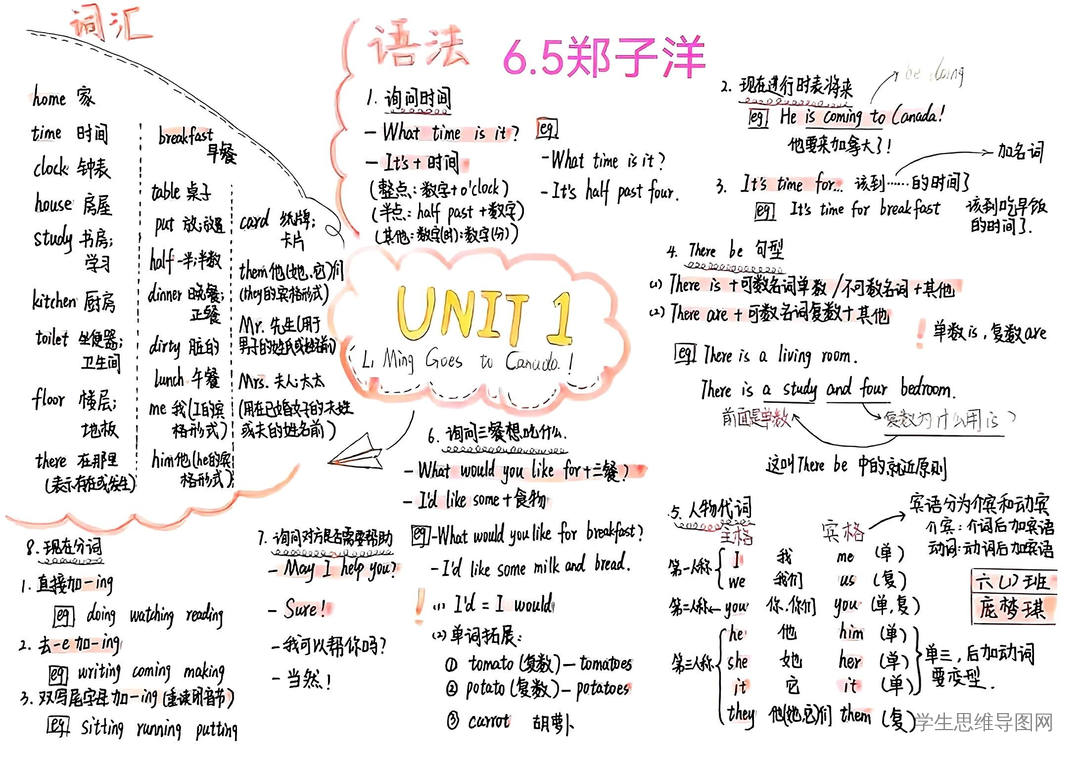 词汇
home 家
time 时间
clock 钟表
house 房屋
study 书房;
学习
kitchen 厨房
toilet 坐便器;
卫生间
floor 楼层;
地板
there 在那里
(表示存在或发生)
breakfast
早餐
table 桌子
put 放;放置
half 一半;半数
dinner 晚餐;
正餐
dirty 脏的
lunch 午餐
me 我(I的宾
格形式)
him 他(he的宾
格形式)
card 纸牌;
卡片
them 他(她,它)们
(they的宾格形式)
Mr. 先生(用于
男子的姓氏或姓名前)
Mrs. 夫人;太太
(用在已婚女子的夫姓
或夫的姓名前)
语法
6.5郑子洋
1. 询问时间
- What time is it?
- It's + 时间
(整点:数字+o'clock)
(半点:half past+数字)
(其他:数字(时):数字(分))
eg
-What time is it?
-It's half past four.
2. 现在进行时表将来
be doing
eg He is coming to Canada!
他要来加拿大了!
3. It's time for… 该到……的时间了
加名词
eg It's time for breakfast
该到吃早饭
的时间了.
4. There be 句型
(1) There is +可数名词单数/不可数名词+其他
(2) There are +可数名词复数+其他
! 单数is,复数are
eg There is a living room.
There is a study and four bedroom.
前面是单数
复数为什么用is?
这叫There be 中的就近原则
UNIT 1
Li Ming Goes to Canada!
5. 人物代词
主格 宾格
宾语分为介宾和动宾
介宾:介词后加宾语
动词:动词后加宾语
第一人称 I 我 me (单)
we 我们 us (复)
第二人称 you 你,你们 you (单,复)
第三人称 he 他 him (单)
she 她 her (单)
it 它 it (单)
they 他(她,它)们 them (复)
单三,后加动词
要变型.
六(1)班
庞梦琪
6. 询问三餐想吃什么.
- What would you like for+三餐?
- I'd like some+食物
eg -What would you like for breakfast?
-I'd like some milk and bread.
! (1) I'd = I would
(2) 单词拓展:
① tomato(复数)—tomatoes
② potato(复数)—potatoes
③ carrot 胡萝卜
7. 询问对方是否需要帮助
- May I help you?
- Sure!
-我可以帮你吗?
-当然!
8. 现在分词
1. 直接加-ing
eg doing watching reading
2. 去-e加-ing
eg writing coming making
3. 双写尾字母加-ing(重读闭音节)
eg sitting running putting
学生思维导图网